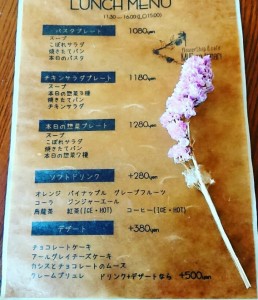 LUNCH MENU
11:30 ~ 16:00 (L.O 15:00)
パスタプレート 1080yen
スープ
こぼれサラダ
焼きたてパン
本日のパスタ
チキンサラダプレート 1180yen
スープ
本日の惣菜3種
焼きたてパン
本日の惣菜プレート 1280yen
スープ
こぼれサラダ
焼きたてパン
本日の惣菜7種
ソフトドリンク +280yen
オレンジ パイナップル グレープフルーツ
コーラ ジンジャーエール
烏龍茶 紅茶(ICE・HOT) コーヒー(ICE・HOT)
デザート +380yen
チョコレートケーキ
アールグレイチーズケーキ
カシスとチョコレートのムース
クレームブリュレ ドリンク+デザートなら +500yen